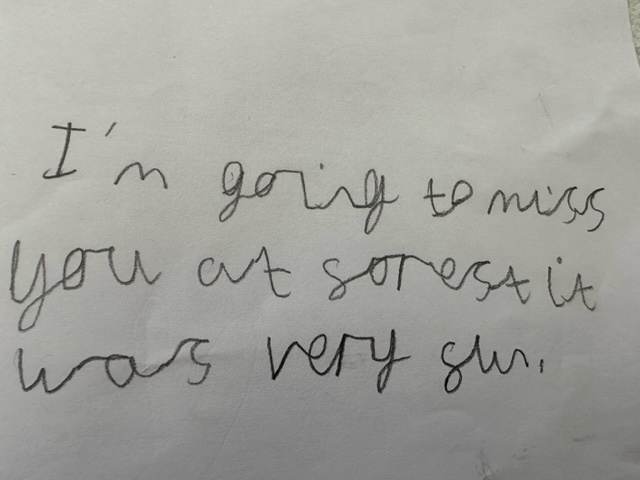 I'm going to miss
you at sorest it
was very sun.